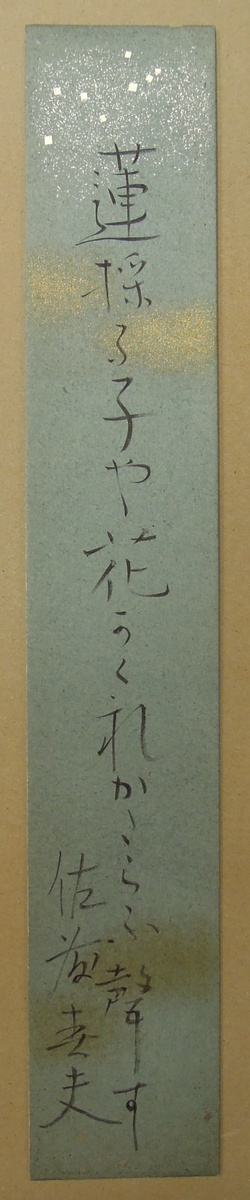 蓮採る子や花かくれかたらふ聲す
佐藤春夫